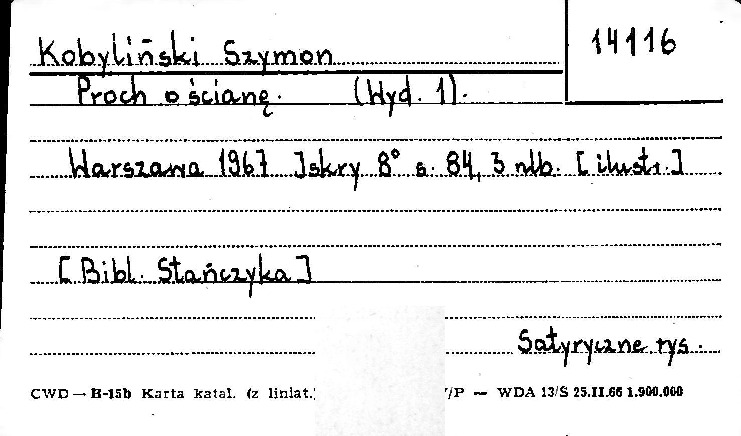 Kobyliński Szymon
14116
Proch o ścianę. (Wyd. 1).
Warszawa 1967 Iskry 8° s. 84, 3 nlb. [ilustr.]
[Bibl. Stańczyka]
Satyryczne rys.
CWD — B-15b Karta katal. (z liniat. /P — WDA 13/S 25.II.66 1.900.000